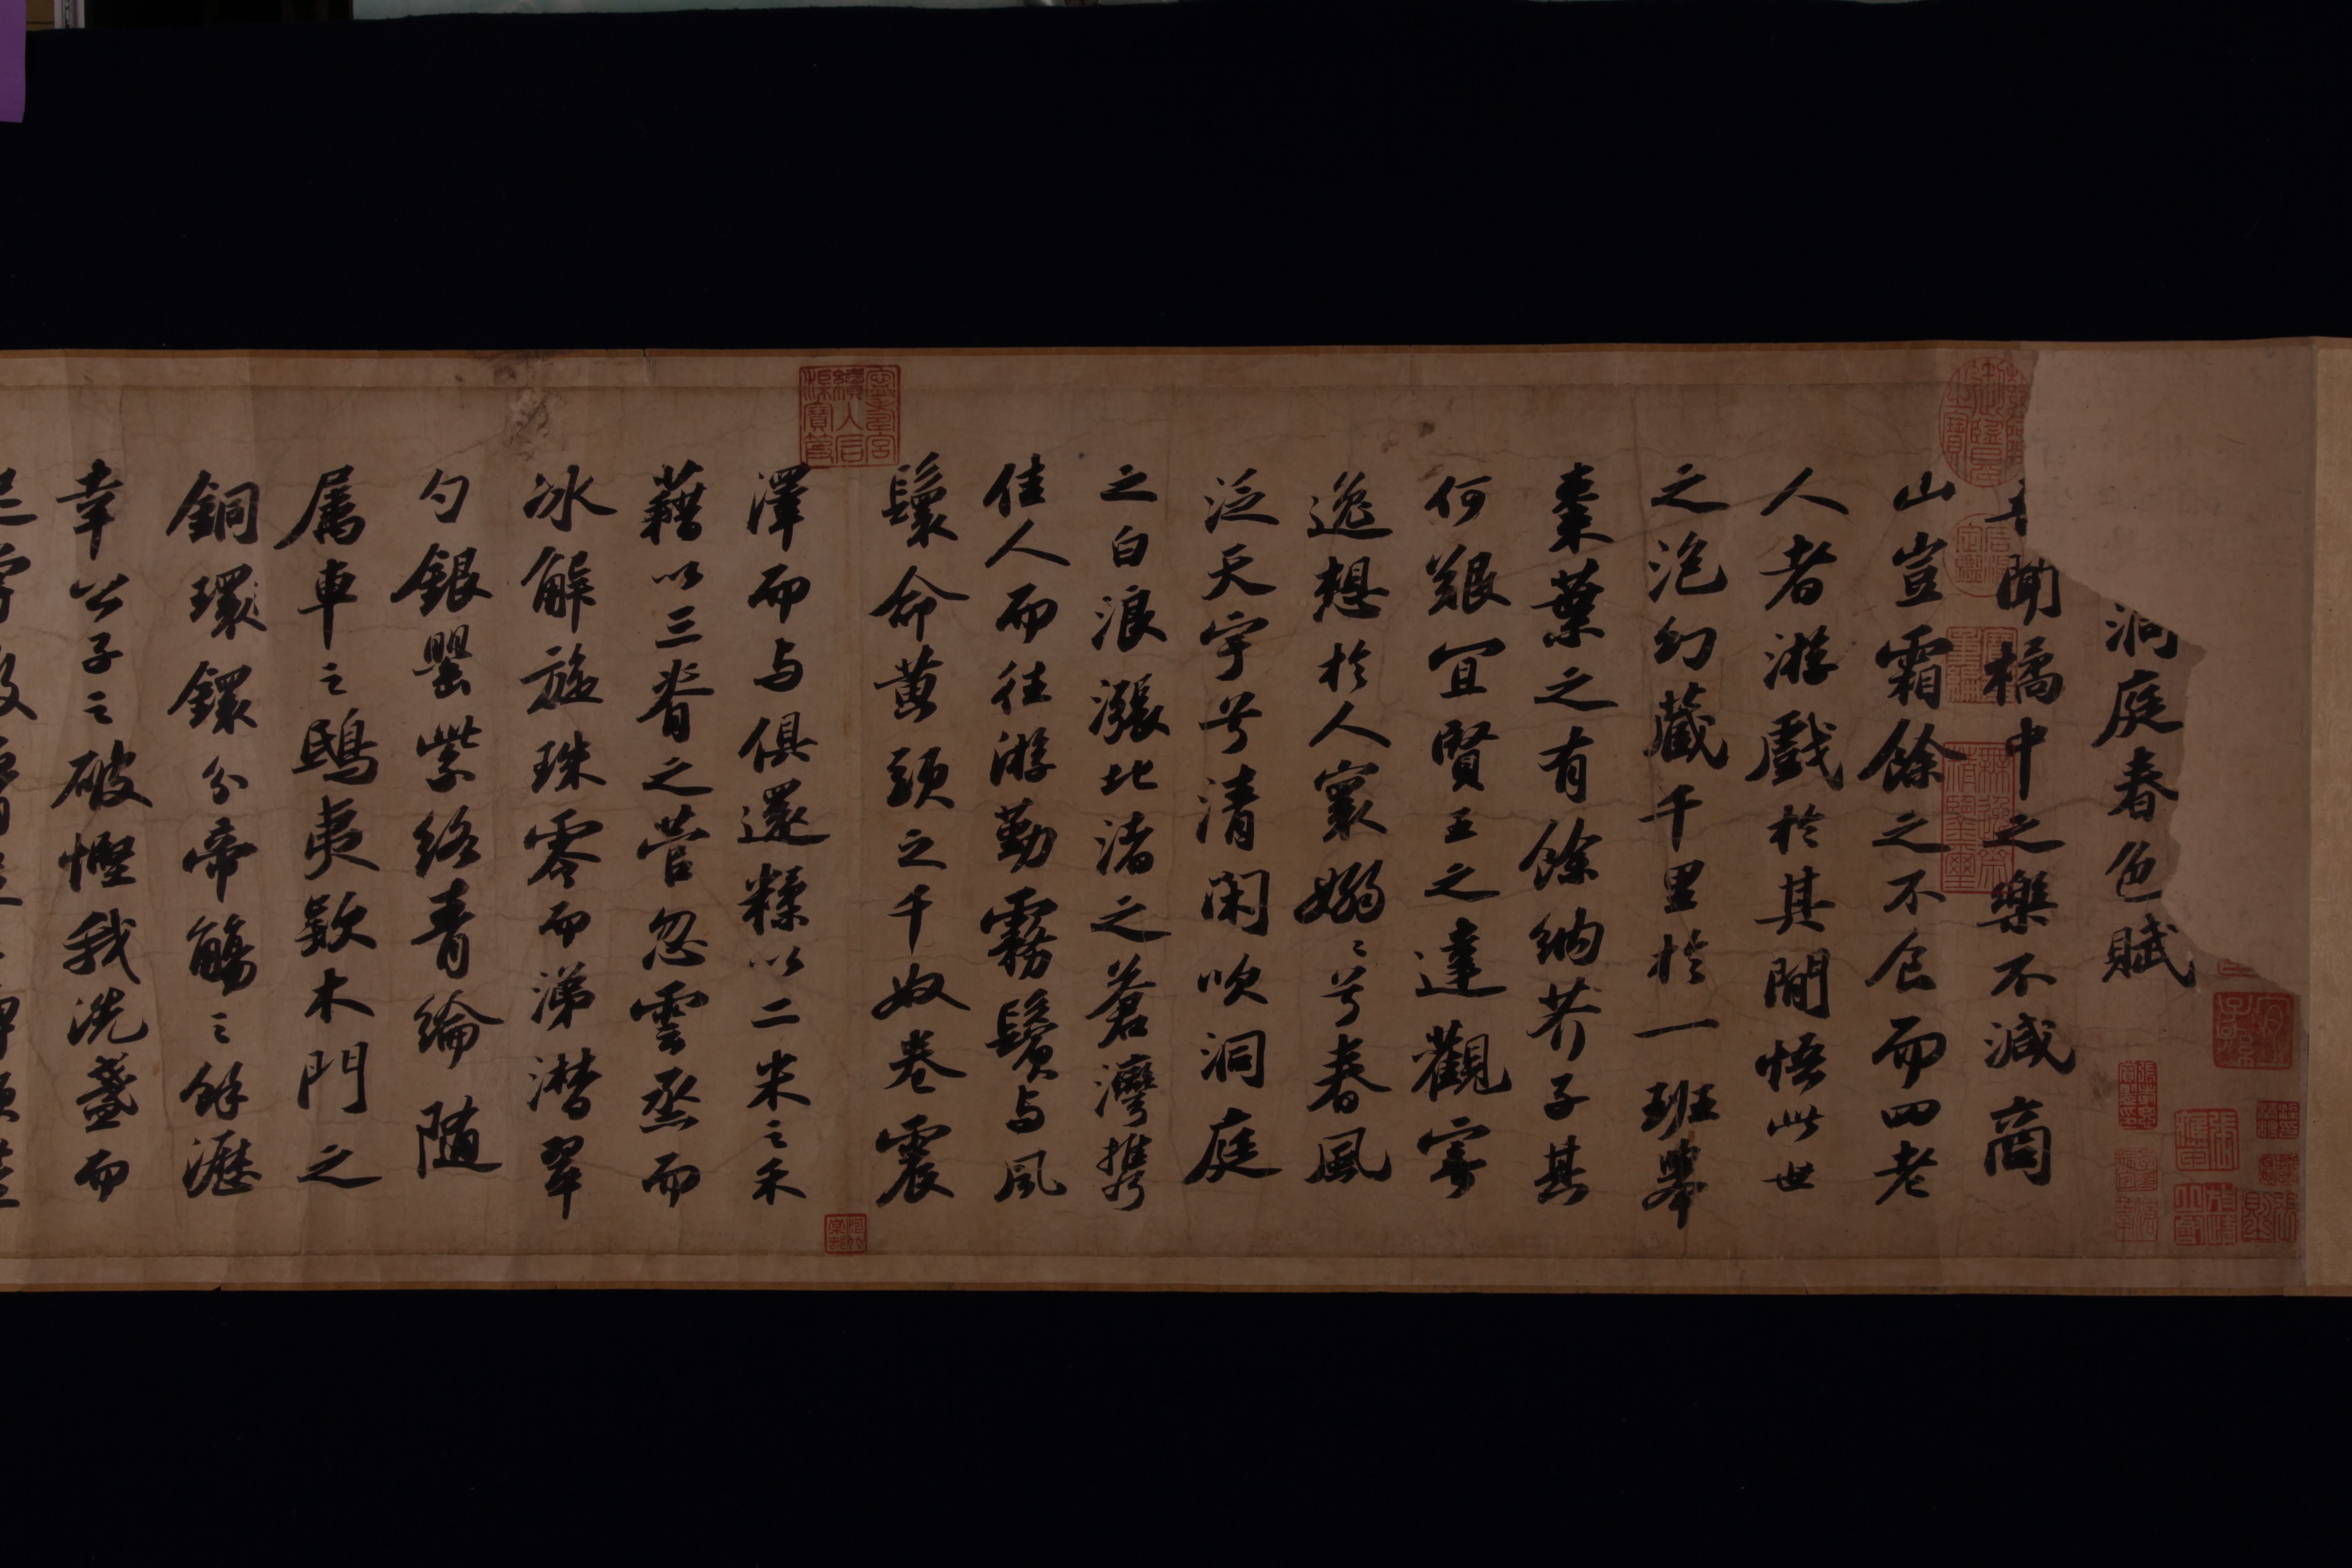 洞庭春色賦
聞橘中之樂不減商
山豈霜餘之不食而四老
人者游戲於其間悟此世
之泡幻藏千里於一班舉
棗葉之有餘納芥子其
何艱宜賢王之達觀寄
逸想於人寰嫋〻兮春風
泛天宇兮清閑吹洞庭
之白浪漲北渚之蒼灣攜
佳人而往游勤霧鬢与風
鬟命黃頭之千奴卷震
澤而与俱還糅以二米之禾
藉以三脊之菅忽雲烝而
冰解旋珠零而涕潸翠
勺銀罌紫絡青綸隨
属車之鴟夷欵木門之
銅環鐶分帝觴之餘瀝
幸公子之破慳我洗盞而